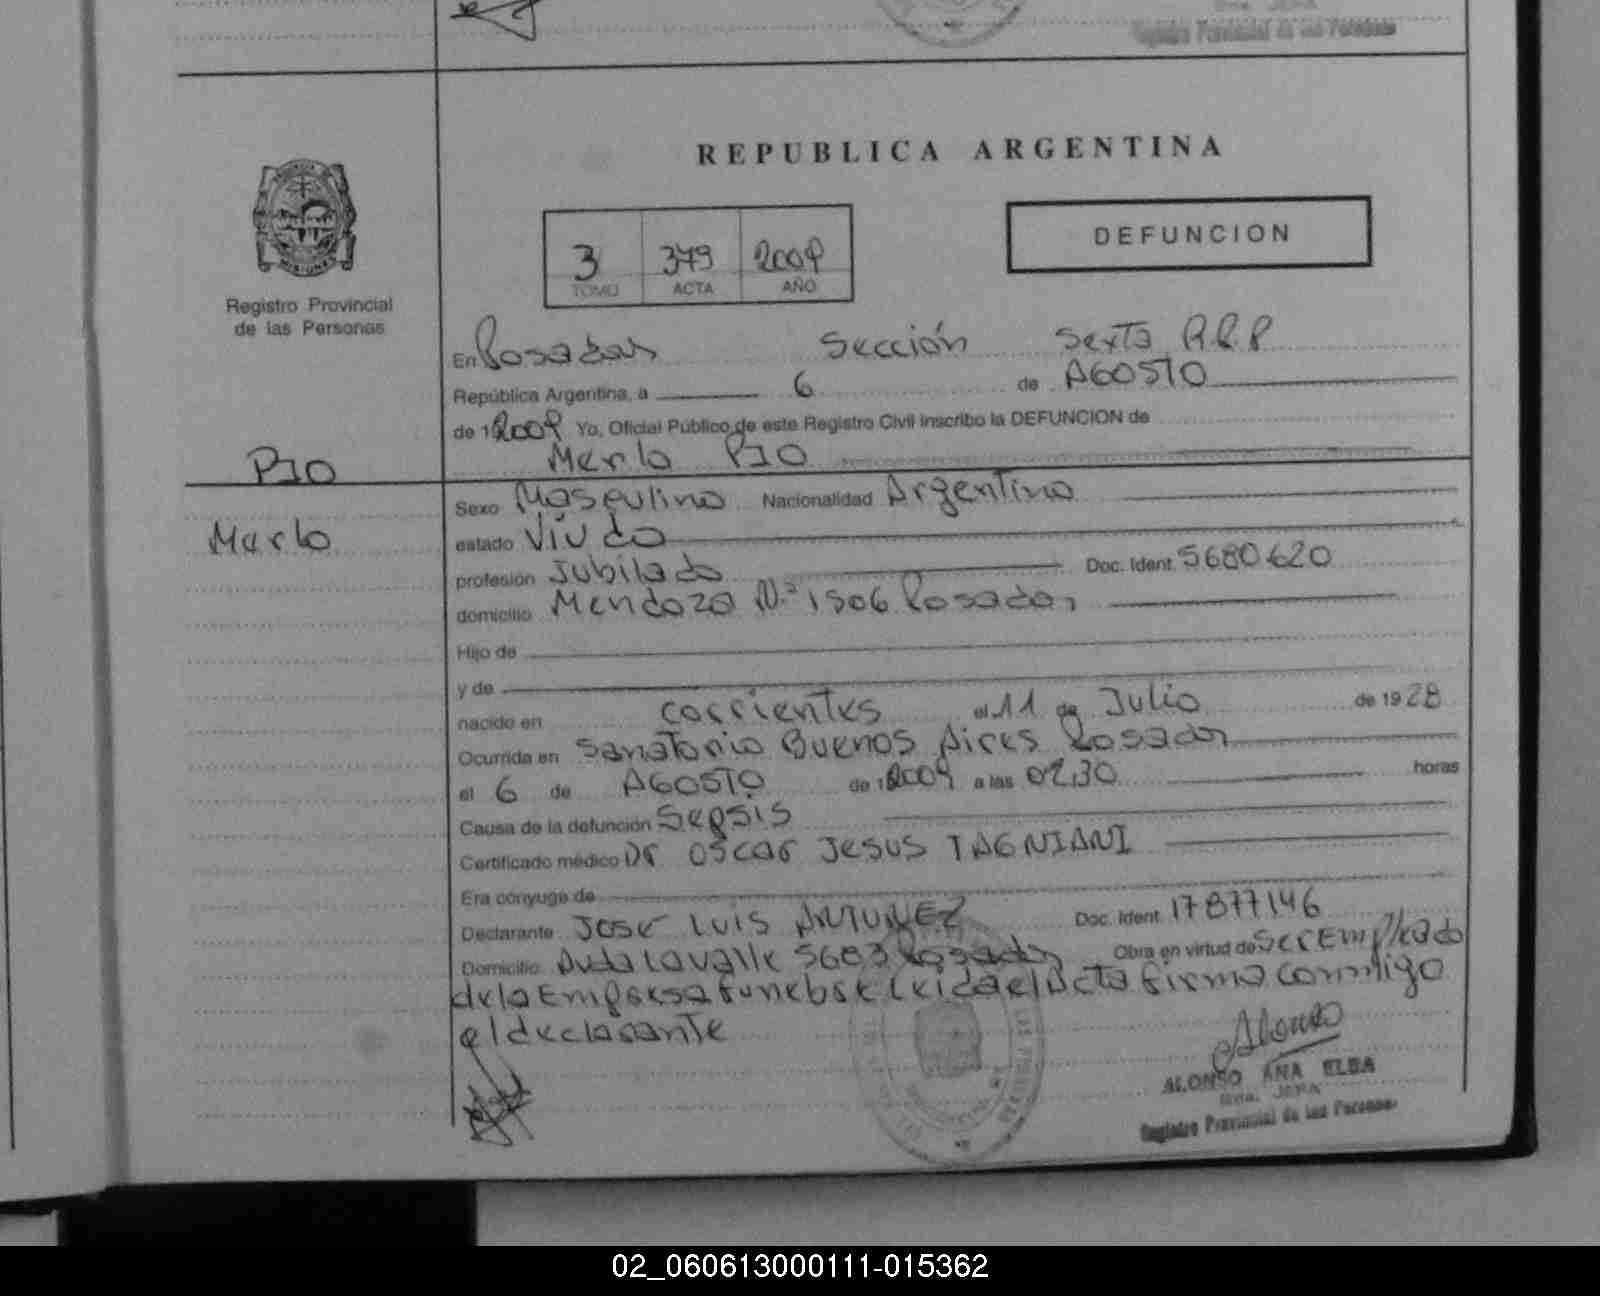 Registro Provincial de las Personas
REPUBLICA ARGENTINA
MISIONES
Registro Provincial
de las Personas
3 379 2009
TOMO ACTA AÑO
DEFUNCION
En Posadas Sección Sexta R.P.P
República Argentina, a 6 de AGOSTO
de 12009 Yo, Oficial Público de este Registro Civil inscribo la DEFUNCION de
Merlo PIO
PIO
Merlo
Sexo Masculino Nacionalidad Argentina
estado Viudo
profesión Jubilado Doc. Ident. 5680620
domicilio Mendoza N.º 1506 Posadas
Hijo de
y de
nacido en corrientes el 11 de Julio de 1928
Ocurrida en Sanatorio Buenos Aires Posadas
el 6 de AGOSTO de 12009 a las 02,30 horas
Causa de la defunción Sepsis
Certificado médico Dr OSCAR JESUS TAGNIANI
Era cónyuge de
Declarante JOSÉ LUIS ANTUNEZ Doc. Ident. 17877146
Domicilio Avda Lavalle 5683 Posadas Obra en virtud de Ser Empleado
de la Empresa funebre Leida el Acta firma conmigo
el declarante
ALONSO ANA ELBA
JEFA
Registro Provincial de las Personas
02_060613000111-015362